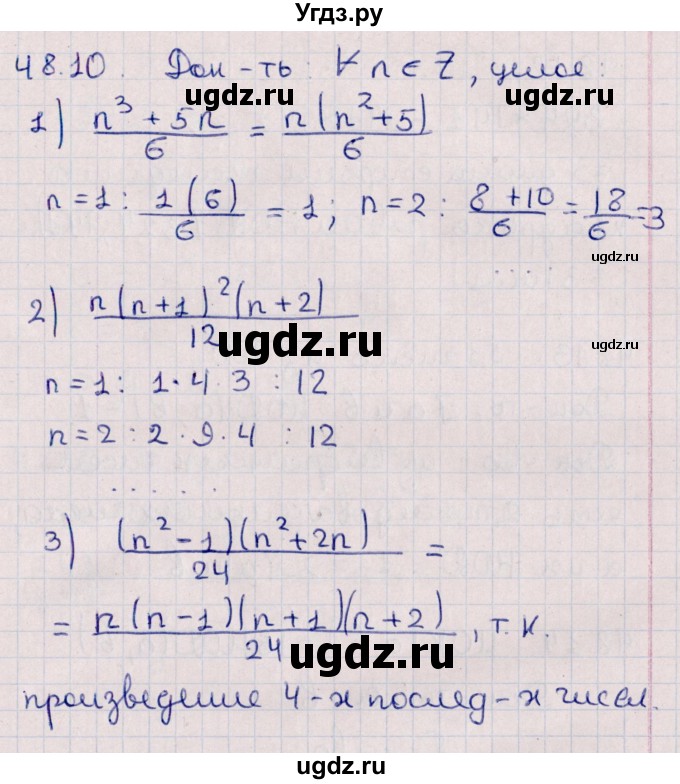 Угдз.ру
48.10. Док-ть: ∀ n ∈ Z, целое:
ugdz.ru ugdz.ru
1) (n³ + 5n)/6 = n(n² + 5)/6
n = 1 : 1(6)/6 = 1; n = 2 : (8 + 10)/6 = 18/6 = 3
ugdz.ru
. . . .
2) n(n + 1)²(n + 2)/12
ugdz.ru ugdz.ru
n = 1 : 1 · 4 · 3 : 12
n = 2 : 2 · 9 · 4 : 12
. . . . . .
3) (n² - 1)(n² + 2n)/24 =
ugdz.ru
= n(n - 1)(n + 1)(n + 2)/24, т.к.
ugdz.ru ugdz.ru
произведение 4-х послед-х чисел.
ugdz.ru